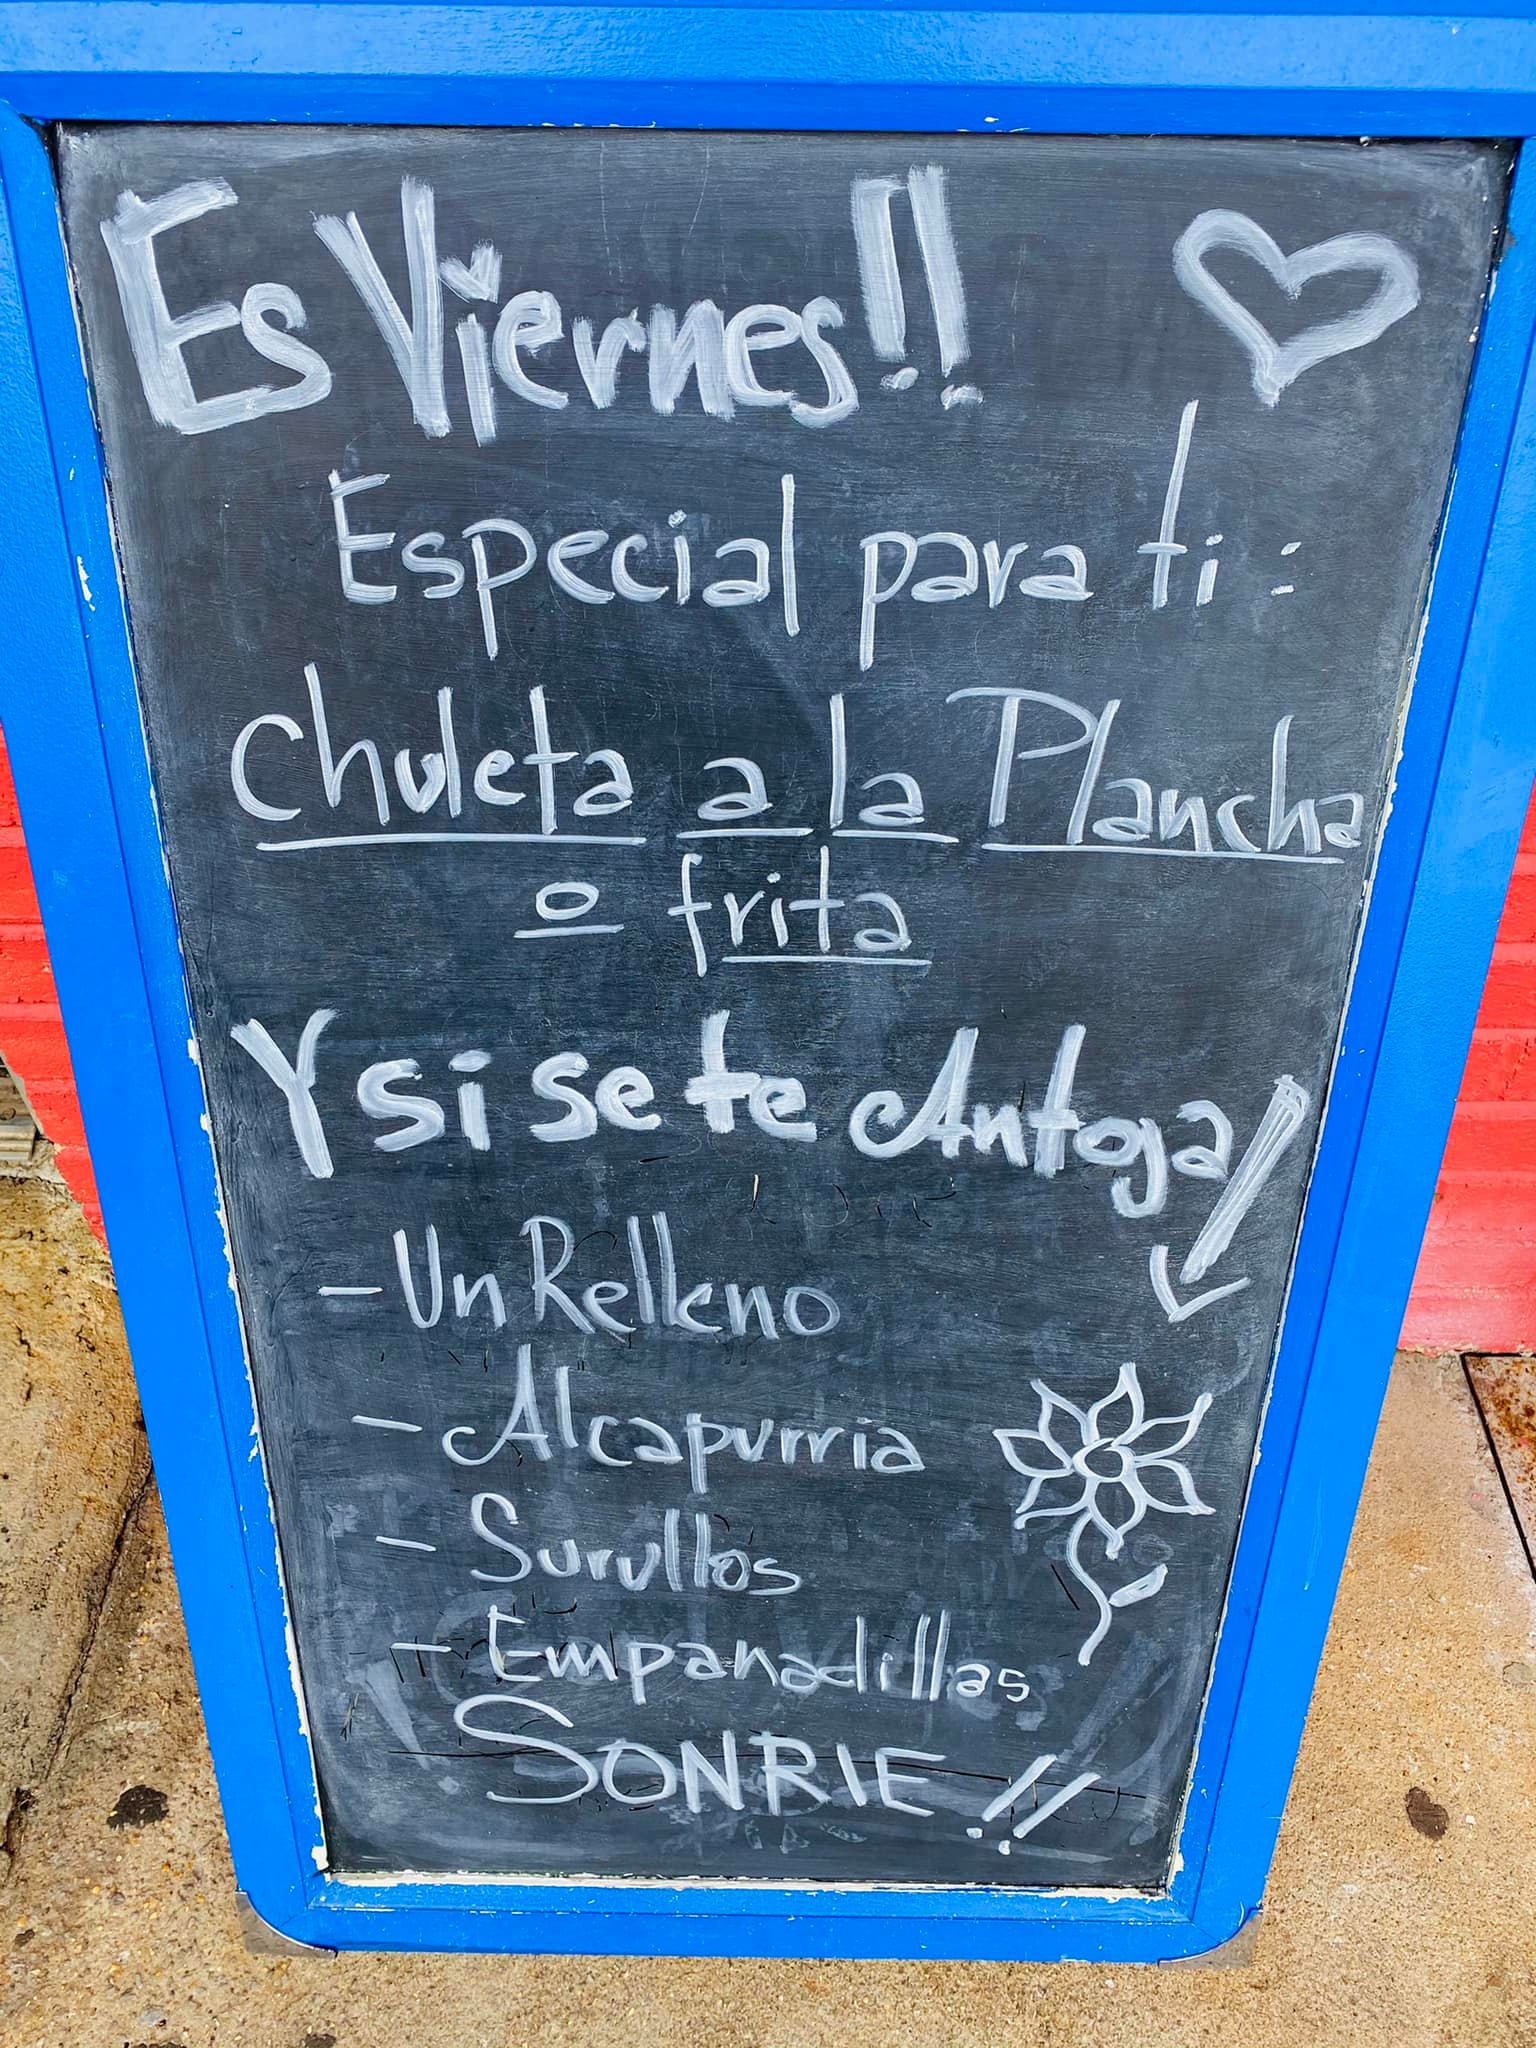 Es Viernes!!
Especial para ti:
Chuleta a la Plancha
o frita
Y si se te Antoja
- Un Relleno
- Alcapurria
- Surullos
- Empanadillas
SONRIE!!